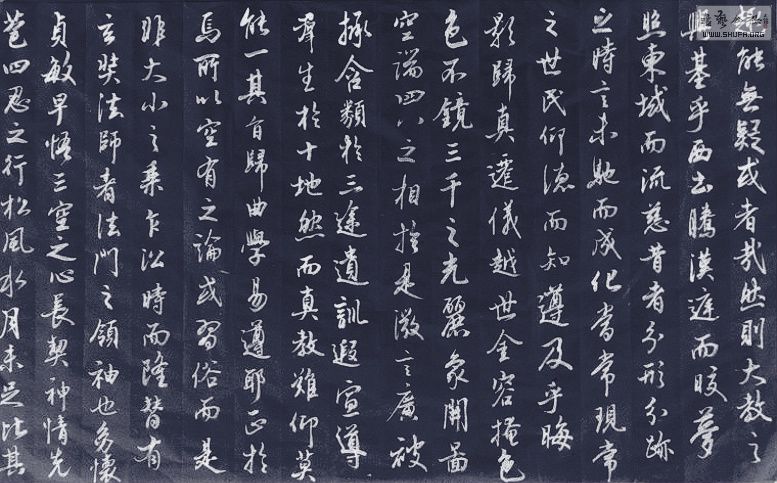 能無疑或者哉然則大教之
基乎西土騰漢庭而皎夢
照東域而流慈昔者分形分跡
之時言未馳而成化當常現常
之世民仰德而知遵及乎晦
影歸真遷儀越世金容掩色
色不鏡三千之光麗象開圖
空端四八之相於是微言廣被
拯含類於三途遺訓遐宣導
群生於十地然而真教難仰莫
能一其旨歸曲學易遵耶正於
焉所以空有之論或習俗而是
非大小之乘乍沿時而隆替有
玄奘法師者法門之領袖也幼懷
貞敏早悟三空之心長契神情先
苞四忍之行松風水月未足比其
WWW.SHUFA.ORG